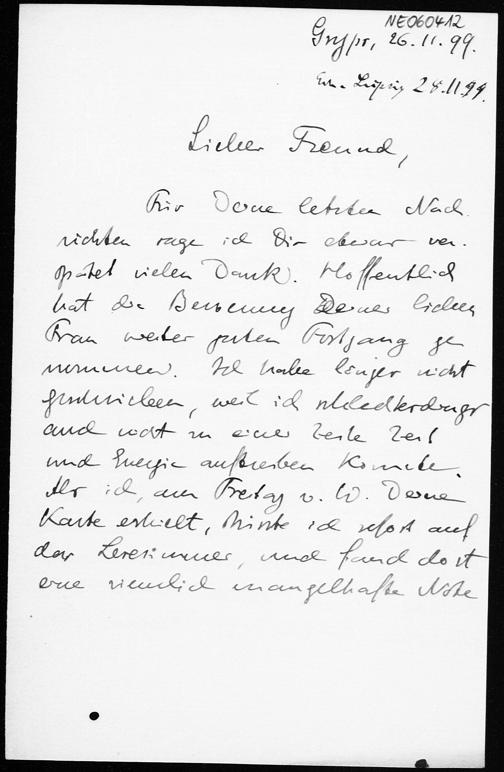 NE060412
Gryps, 26.11.99.
Leipzig 28.11.99.
Lieber Freund,
Für Deine letzten Nach-
richten sage ich Dir etwas ver-
spätet vielen Dank. Hoffentlich
hat die Besserung Deiner lieben
Frau weiter guten Fortgang ge
nommen. Ich habe länger nicht
geschrieben, weil ich schlechterdings
auch nicht zu einer Zeile Zeit
und Energie auftreiben konnte.
Als ich, am Freitag v. W. Deine
Karte erhielt, stürzte ich sofort auf
das Lesezimmer, und fand dort
eine ziemlich mangelhafte Note